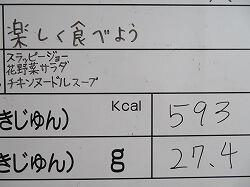 楽しく食べよう
スラッピージョー
花野菜サラダ
チキンヌードルスープ
Kcal
きじゅん) 593
きじゅん) g 27.4